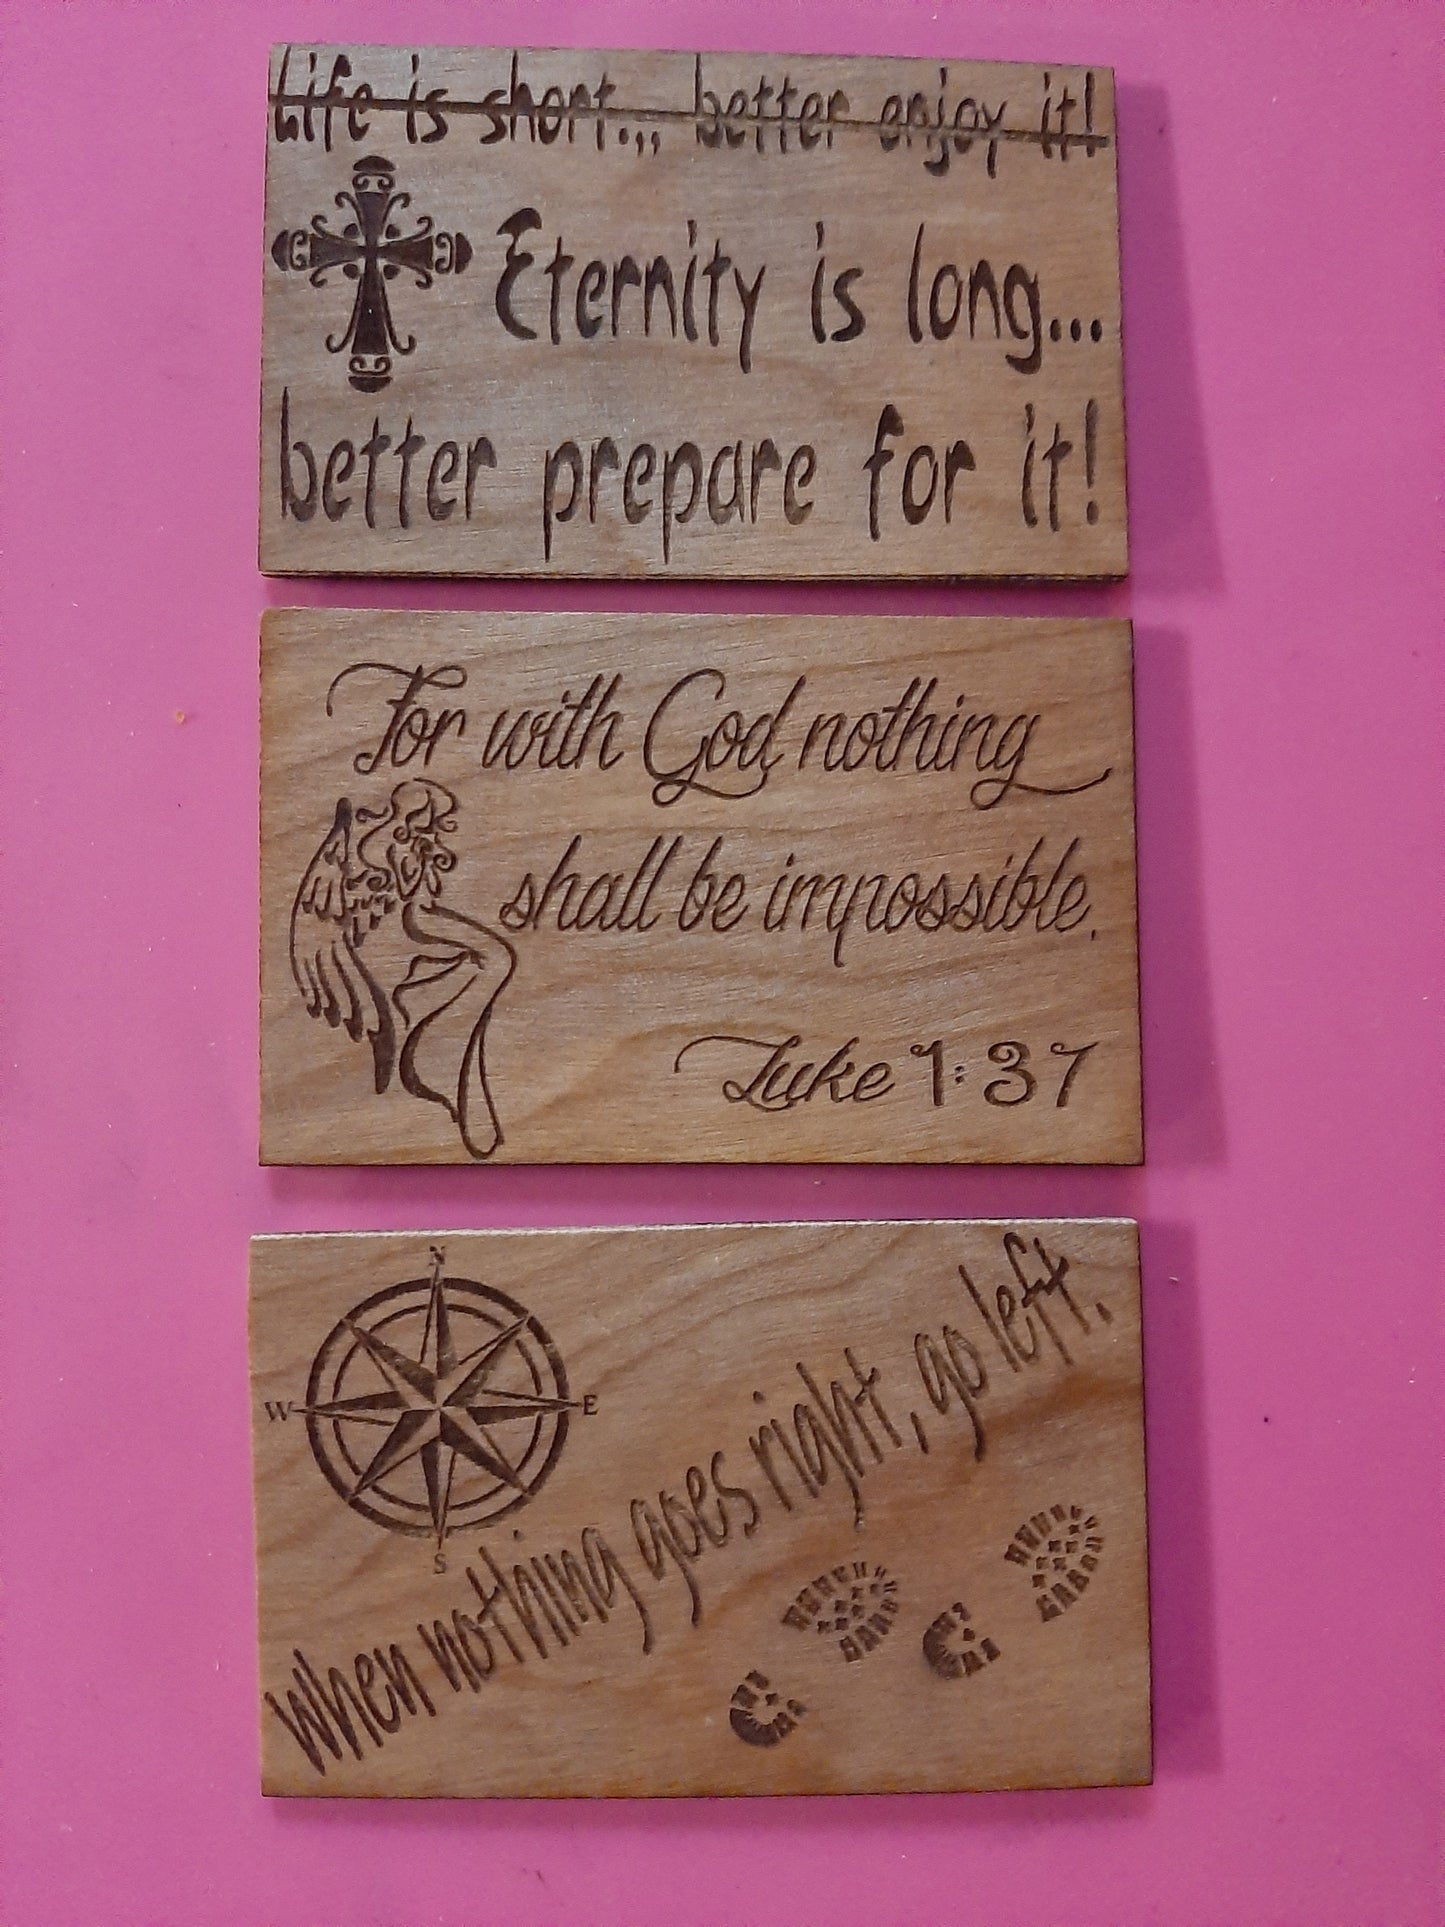 Life is short... better enjoy it!
Eternity is long...
better prepare for it!
For with God nothing
shall be impossible.
Luke 1:37
N
W E
S
When nothing goes right, go left.